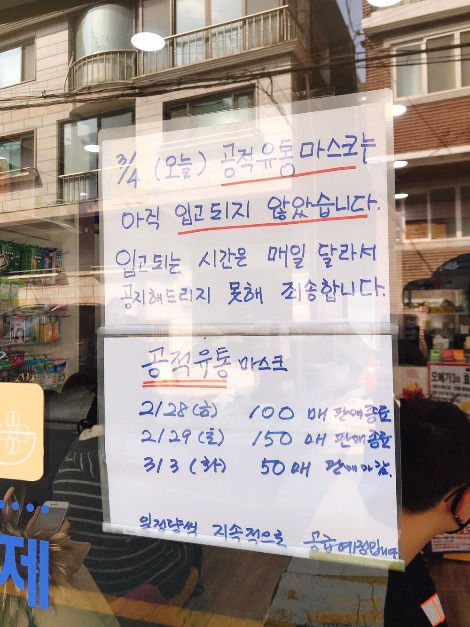 3/4 (오늘) 공적유통 마스크는
아직 입고되지 않았습니다.
입고되는 시간은 매일 달라서
공지해드리지 못해 죄송합니다.
공적유통 마스크
2/28(금) 100 매 판매종료
2/29(토) 150 매 판매종료
3/3 (화) 50매 판매마감.
일정량씩 지속적으로 공급예정입니다
제